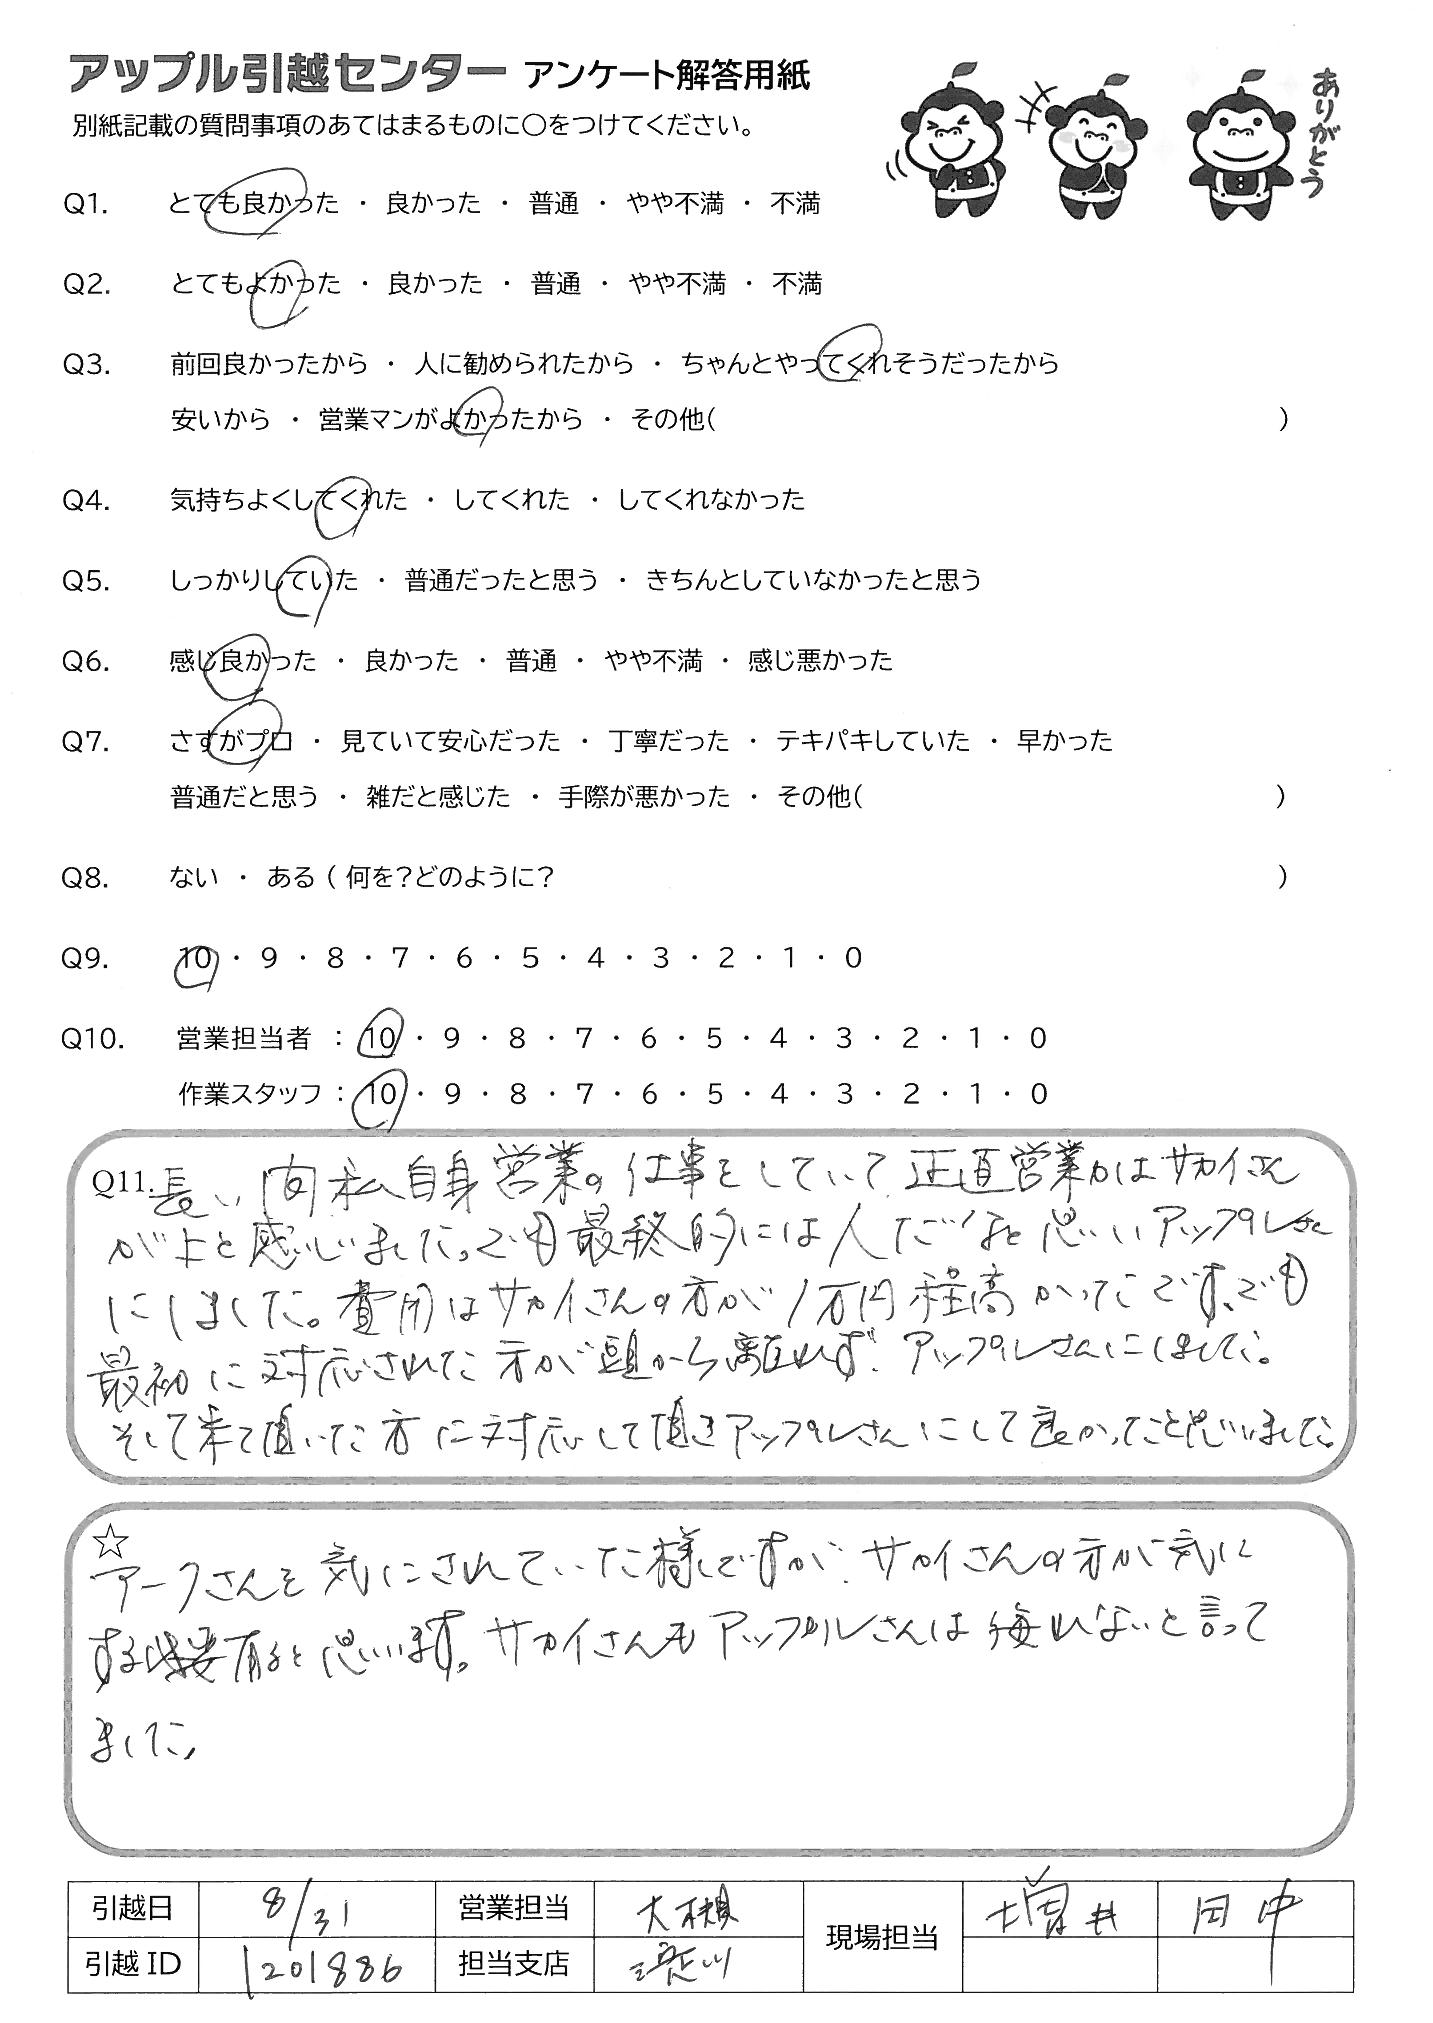 アップル引越センター アンケート解答用紙
別紙記載の質問事項のあてはまるものに〇をつけてください。
ありがとう
Q1. とても良かった ・ 良かった ・ 普通 ・ やや不満 ・ 不満
Q2. とてもよかった ・ 良かった ・ 普通 ・ やや不満 ・ 不満
Q3. 前回良かったから ・ 人に勧められたから ・ ちゃんとやってくれそうだったから
安いから ・ 営業マンがよかったから ・ その他( )
Q4. 気持ちよくしてくれた ・ してくれた ・ してくれなかった
Q5. しっかりしていた ・ 普通だったと思う ・ きちんとしていなかったと思う
Q6. 感じ良かった ・ 良かった ・ 普通 ・ やや不満 ・ 感じ悪かった
Q7. さすがプロ ・ 見ていて安心だった ・ 丁寧だった ・ テキパキしていた ・ 早かった
普通だと思う ・ 雑だと感じた ・ 手際が悪かった ・ その他( )
Q8. ない ・ ある ( 何を?どのように? )
Q9. 10 ・ 9 ・ 8 ・ 7 ・ 6 ・ 5 ・ 4 ・ 3 ・ 2 ・ 1 ・ 0
Q10. 営業担当者 : 10 ・ 9 ・ 8 ・ 7 ・ 6 ・ 5 ・ 4 ・ 3 ・ 2 ・ 1 ・ 0
作業スタッフ : 10 ・ 9 ・ 8 ・ 7 ・ 6 ・ 5 ・ 4 ・ 3 ・ 2 ・ 1 ・ 0
Q11. 長い間私自身営業の仕事をしていて正直営業力はサカイさん
が上と感じました。でも最終的には人だなと思いアップルさん
にしました。費用はサカイさんの方が1万円程高かったです。でも
最初に対応された方が頭から離れず、アップルさんにしました。
そして来て頂いた方に対応して頂きアップルさんにして良かったと思いました。
☆
アークさんを気にされていた様ですが、サカイさんの方が気に
する必要有ると思います。サカイさんもアップルさんは侮れないと言って
ました。
引越日 8/31 営業担当 大槻 現場担当 増井 田中
引越ID 1201886 担当支店 淀川